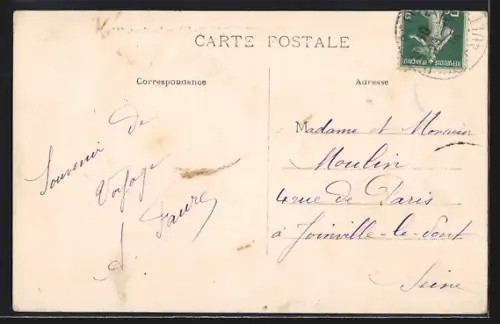 CARTE POSTALE
Correspondance
Souvenir de
Voyage
J. Faure
Adresse
Madame et Monsieur
Moulin
4 rue de Paris
à Joinville-le-Pont
Seine